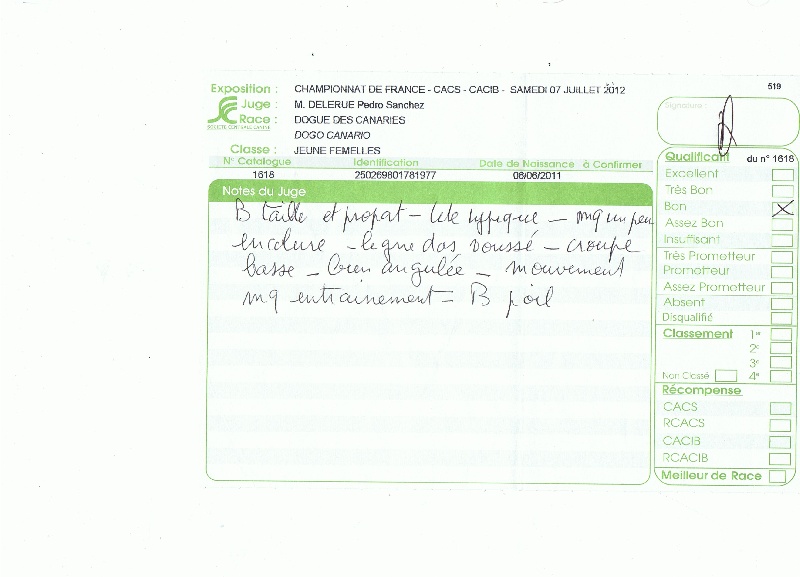 519
Exposition : CHAMPIONNAT DE FRANCE - CACS - CACIB - SAMEDI 07 JUILLET 2012
Juge : M. DELERUE Pedro Sanchez
Race : DOGUE DES CANARIES
SOCIÉTÉ CENTRALE CANINE
DOGO CANARIO
Classe : JEUNE FEMELLES
N° Catalogue Identification Date de Naissance à Confirmer
1618 250269801781977 06/06/2011
Notes du Juge
B taille et propot - tête typique - mq un peu
encolure - ligne dos voussé - croupe
basse - bien angulée - mouvement
mq entrainement - B poil
Signature :
Qualificant du n° 1618
Excellent
Très Bon
Bon X
Assez Bon
Insuffisant
Très Prometteur
Prometteur
Assez Prometteur
Absent
Disqualifié
Classement 1er
2e
3e
Non Classé 4e
Récompense
CACS
RCACS
CACIB
RCACIB
Meilleur de Race